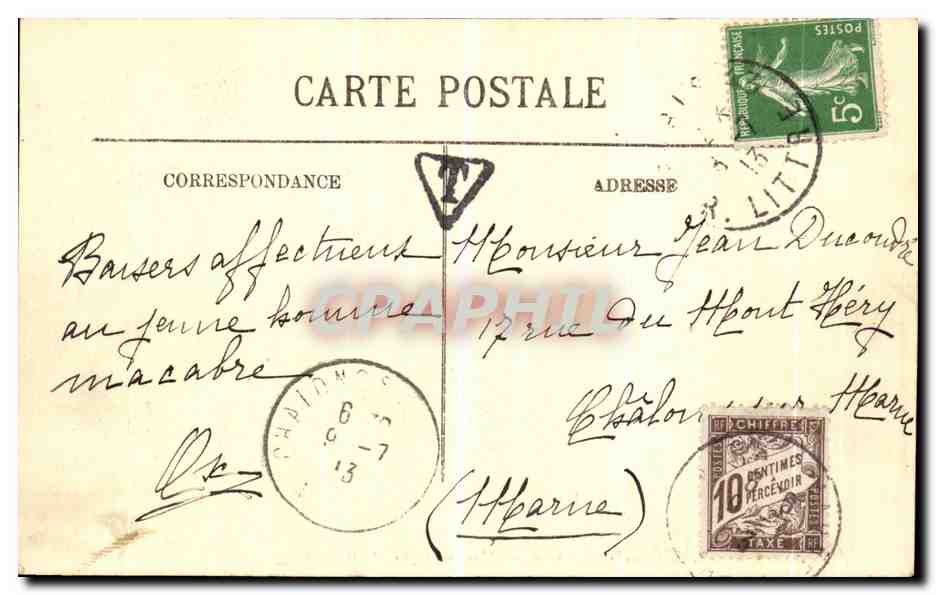 CARTE POSTALE
CORRESPONDANCE
ADRESSE
POSTES
REPUBLIQUE FRANÇAISE
5c
13
R. LITTRE
T
Baisers affectueux
au jeune homme
macabre
Monsieur Jean Ducondré
17 rue du Mont Héry
Châlons sur Marne
(Marne)
CPAPHIL
CHALONS
6
9 -7
13
POSTES
RF CHIFFRE
10 CENTIMES
A
PERCEVOIR
TAXE RF